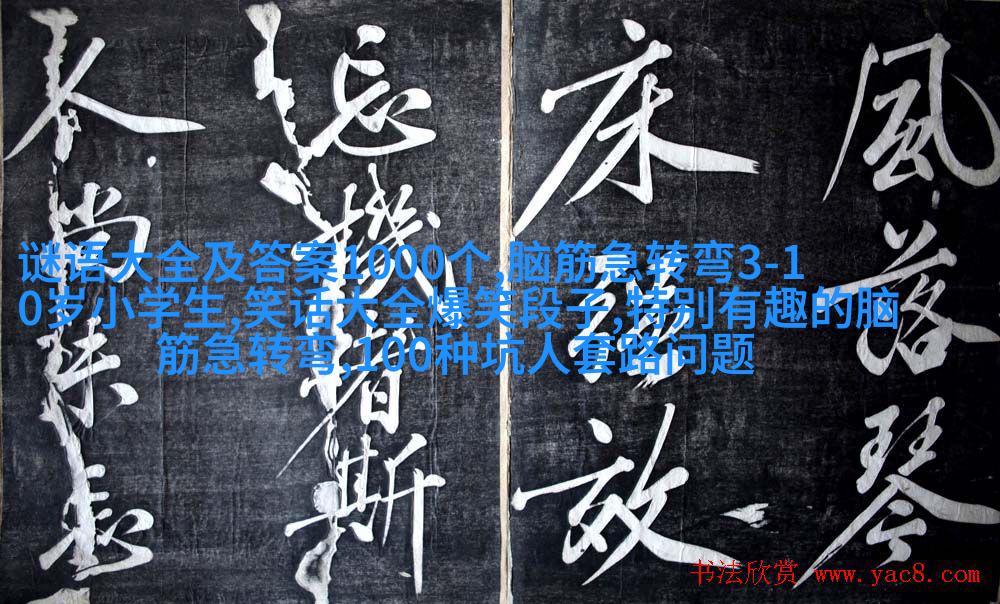 風落琴
床 故
忘機者斯
尚
谜语大全及答案1000个,脑筋急转弯3-1
0岁小学生,笑话大全爆笑段子,特别有趣的脑
筋急转弯,100种坑人套路问题
书法欣赏 www.yac8.com